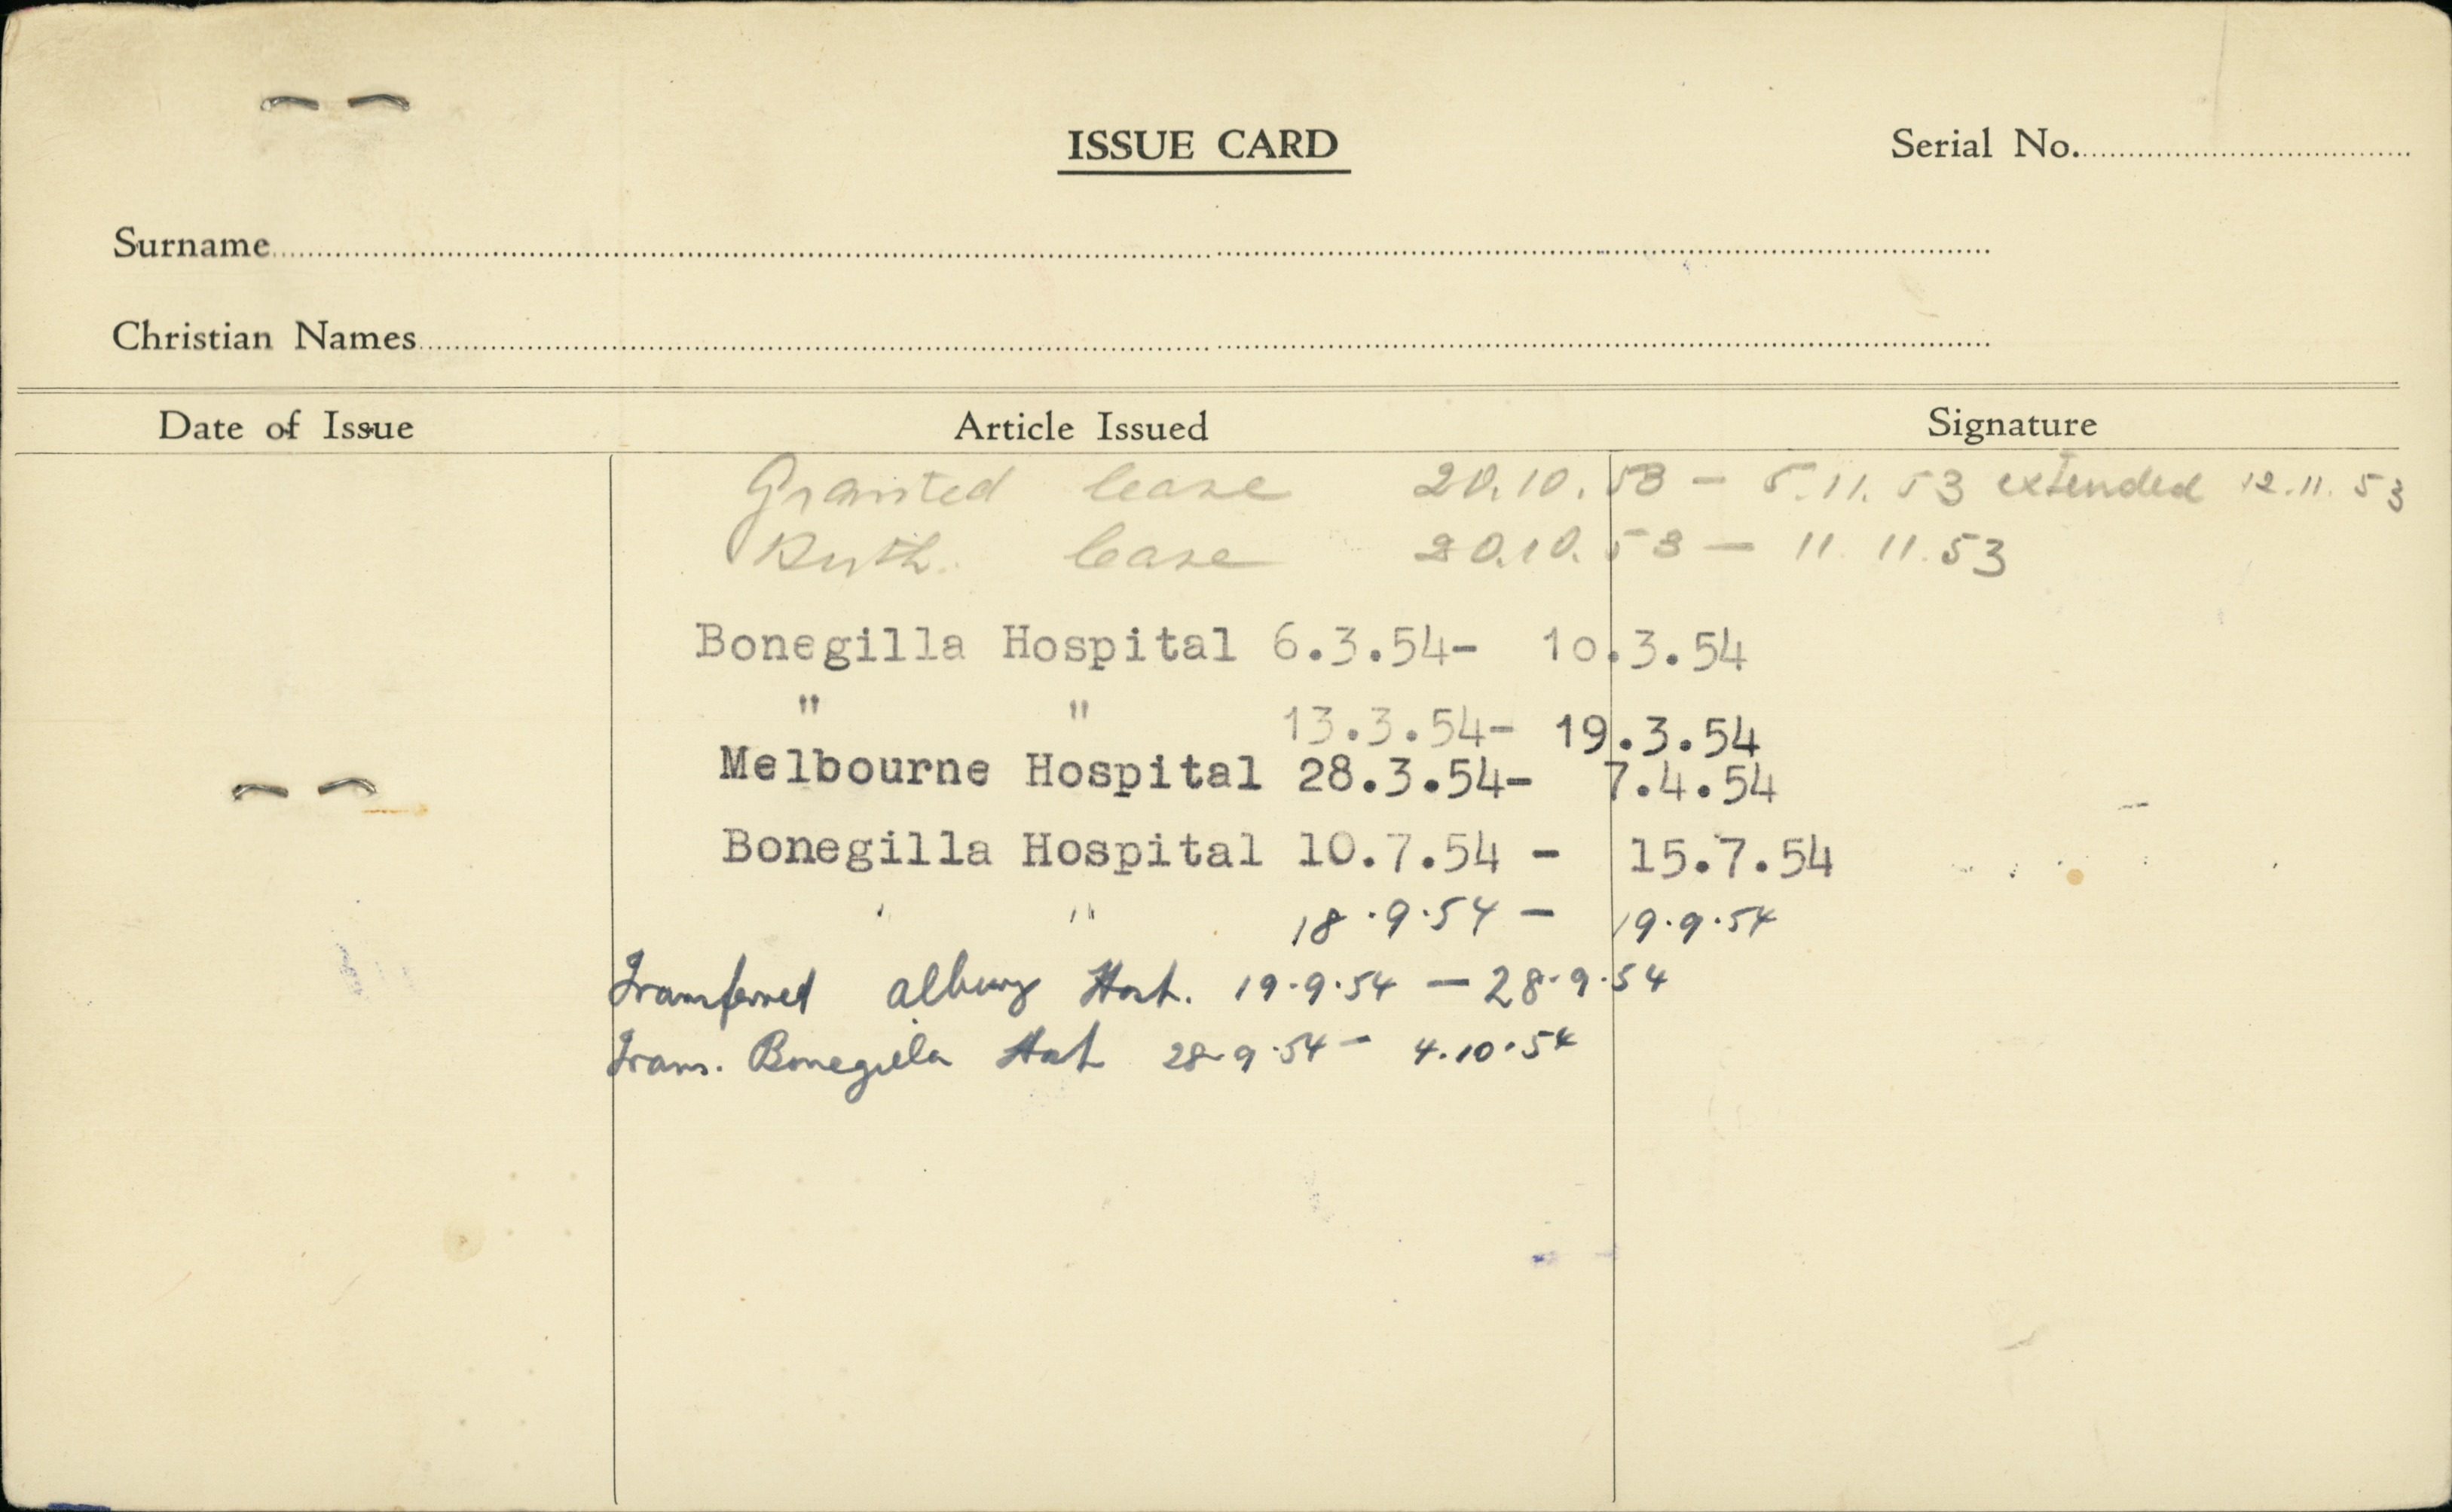 ISSUE CARD
Serial No.
Surname
Christian Names
Date of Issue Article Issued Signature
Granted lease 20.10.53 - 5.11.53 extended 12.11.53
Ruth. lease 20.10.53 - 11.11.53
Bonegilla Hospital 6.3.54- 10.3.54
" " 13.3.54- 19.3.54
Melbourne Hospital 28.3.54- 7.4.54
Bonegilla Hospital 10.7.54 - 15.7.54
" " 18.9.54 - 19.9.54
Transferred Albury Hosp. 19.9.54 - 28.9.54
Trans. Bonegilla Hosp 28.9.54 - 4.10.54